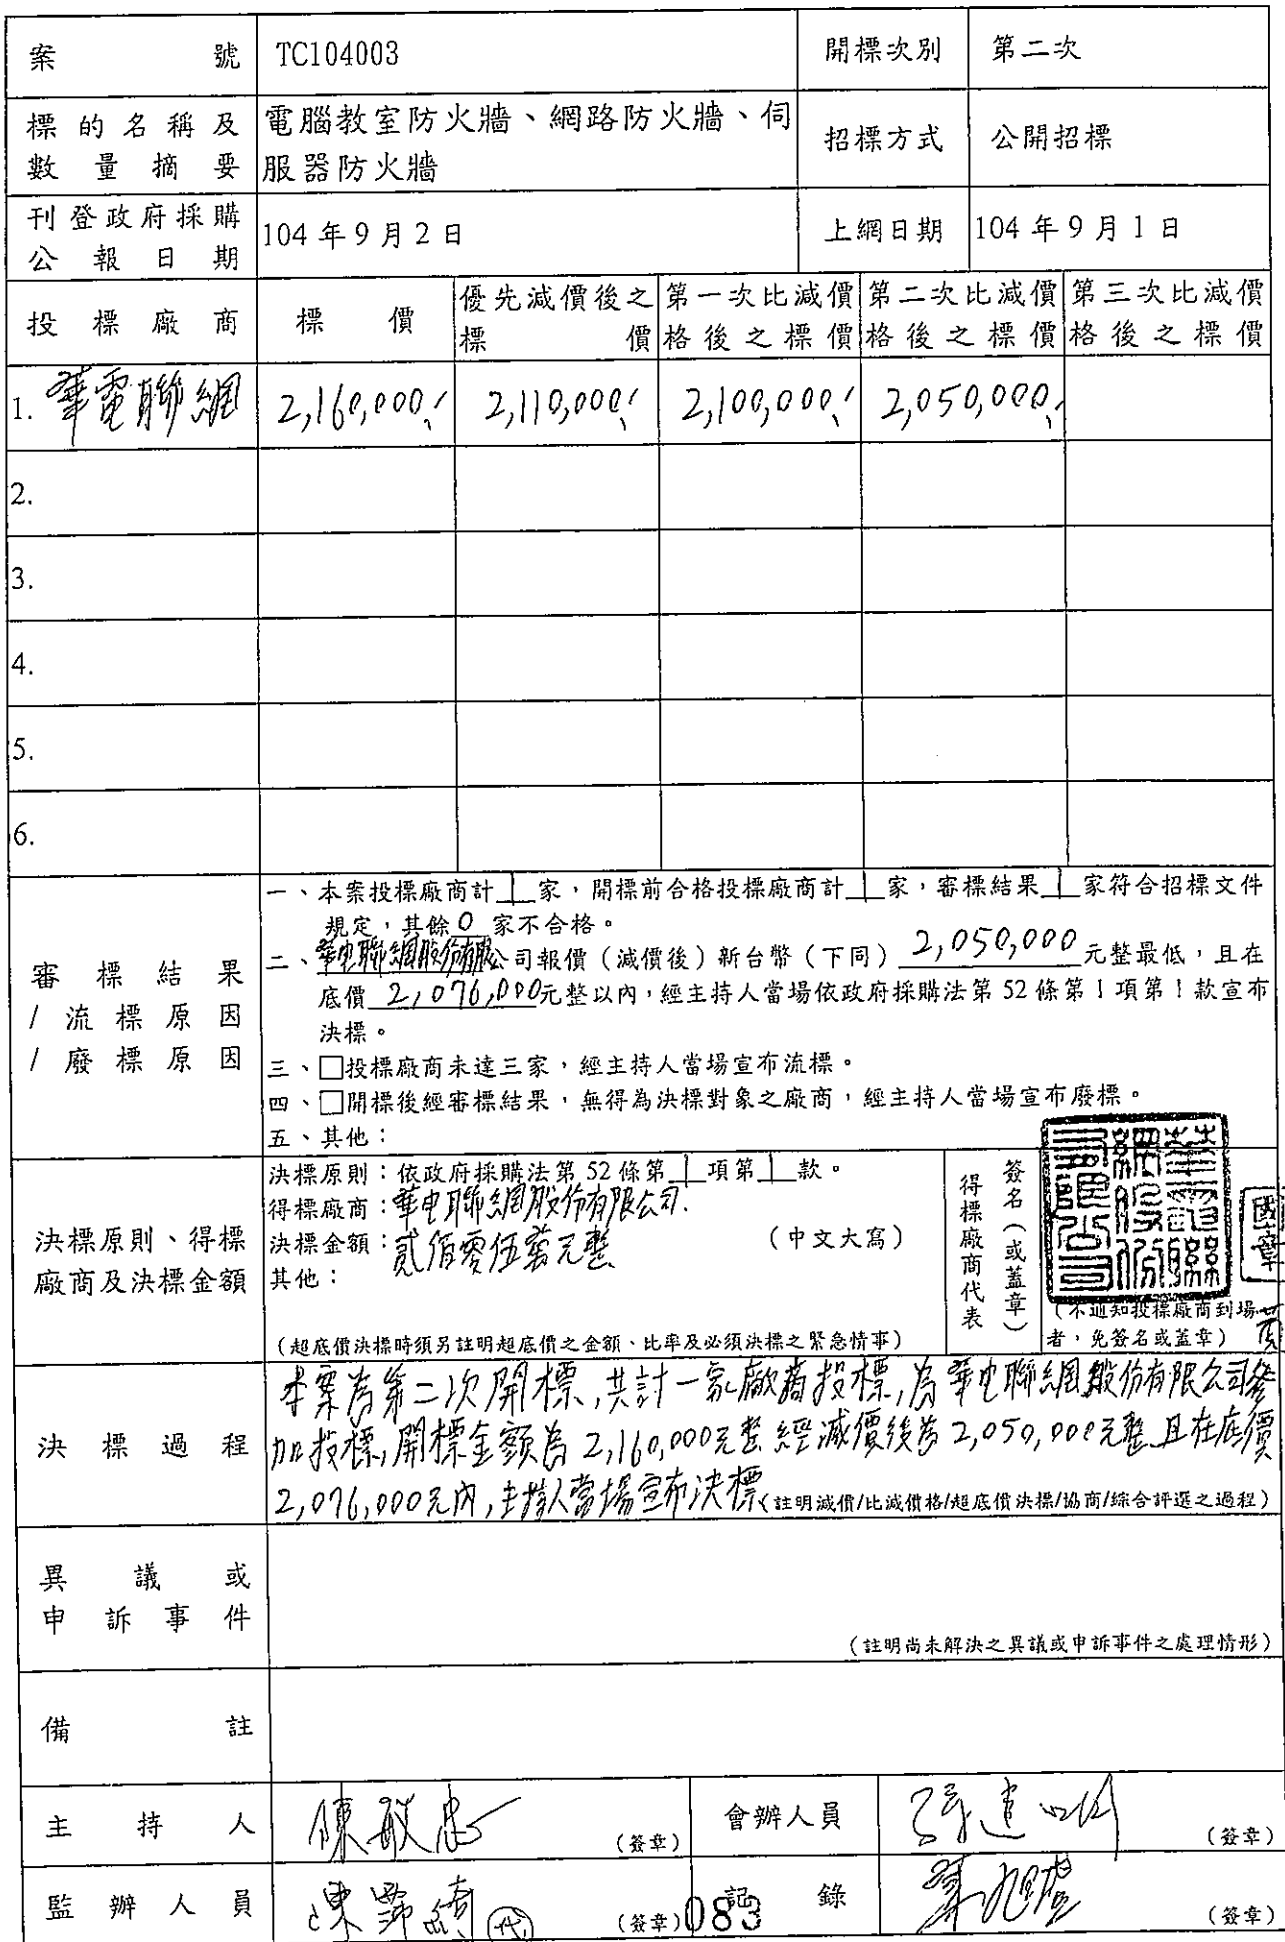 案號 TC104003 開標次別 第二次
標的名稱及數量摘要 電腦教室防火牆、網路防火牆、伺
服器防火牆 招標方式 公開招標
刊登政府採購公報日期 104年9月2日 上網日期 104年9月1日
投標廠商 標價 優先減價後之標價 第一次比減價格後之標價 第二次比減價格後之標價 第三次比減價格後之標價
1. 華電聯網 2,160,000 2,110,000 2,100,000 2,050,000
2.
3.
4.
5.
6.
審標結果
/流標原因
/廢標原因
一、本案投標廠商計1家，開標前合格投標廠商計1家，審標結果1家符合招標文件
規定，其餘0家不合格。
二、華電聯網股份有限公司報價（減價後）新台幣（下同）2,050,000元整最低，且在
底價2,076,000元整以內，經主持人當場依政府採購法第52條第1項第1款宣布
決標。
三、□投標廠商未達三家，經主持人當場宣布流標。
四、□開標後經審標結果，無得為決標對象之廠商，經主持人當場宣布廢標。
五、其他：
決標原則、得標
廠商及決標金額
決標原則：依政府採購法第52條第1項第1款。
得標廠商：華电聯網股份有限公司.
決標金額：貳佰零伍萬元整（中文大寫）
其他：
（超底價決標時須另註明超底價之金額、比率及必須決標之緊急情事）
得標廠商代表
簽名（或蓋章）
（不通知投標廠商到場
者，免簽名或蓋章）
國章
黃
決標過程
本案為第二次開標,共計一家廠商投標,為華电聯網股份有限公司參
加投標,開標金額為2,160,000元整經減價後為2,050,000元整且在底價
2,076,000元內,主持人當場宣布決標（註明減價/比減價格/超底價決標/協商/綜合評選之過程）
異議或
申訴事件
（註明尚未解決之異議或申訴事件之處理情形）
備註
主持人 陳敏忠（簽章） 會辦人員（簽章）
監辦人員 代（簽章） 083 記錄（簽章）